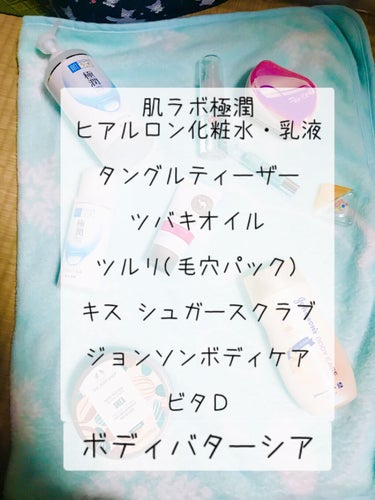 肌ラボ極潤
ヒアルロン化粧水・乳液
タングルティーザー
ツバキオイル
ツルリ(毛穴パック)
キス シュガースクラブ
ジョンソンボディケア
ビタD
ボディバターシア
極潤
極潤